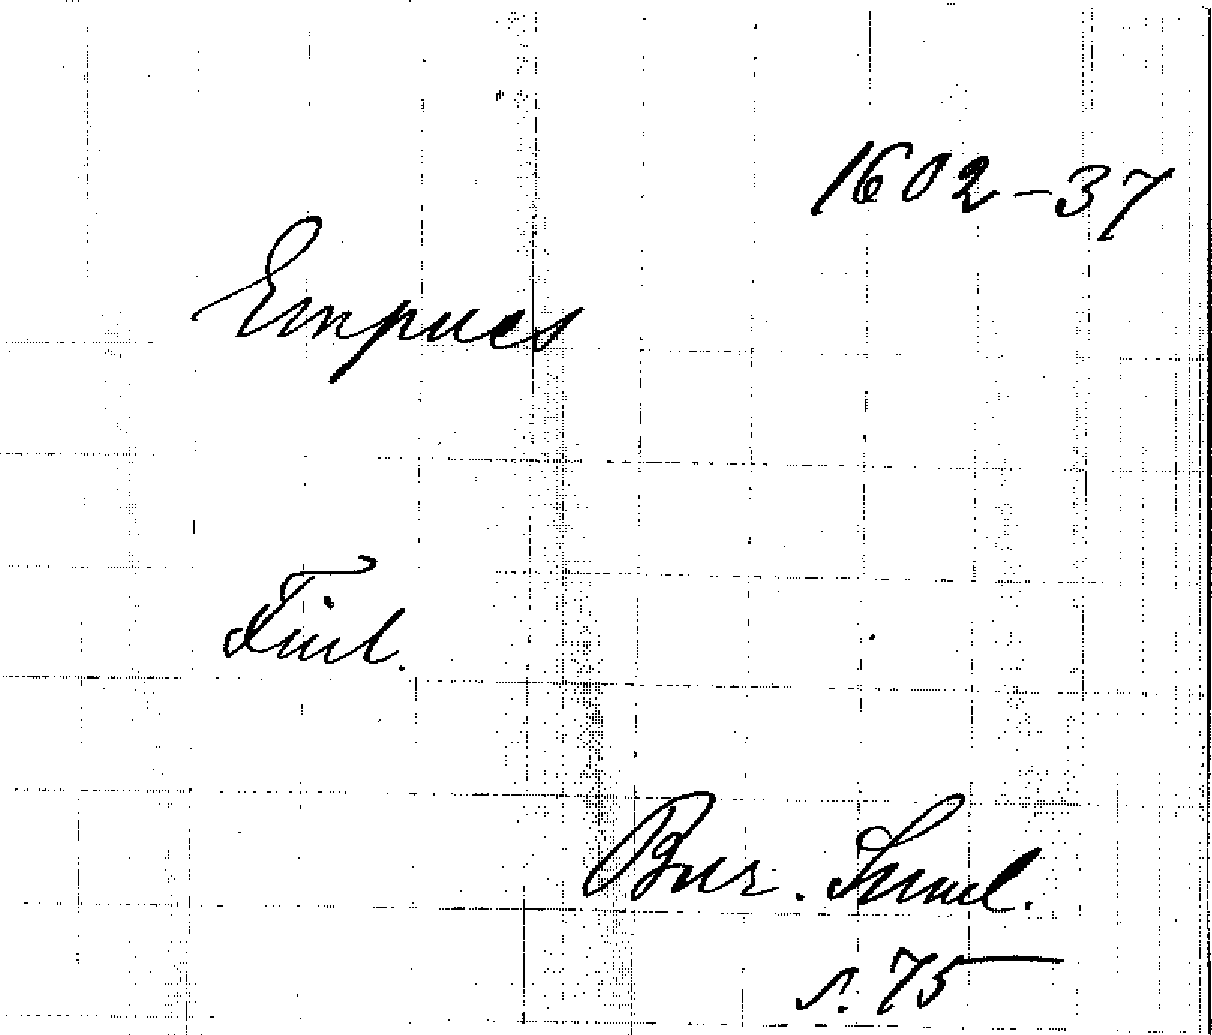 1602-37
Empues
Finl.
Bur. Saml.
s. 75